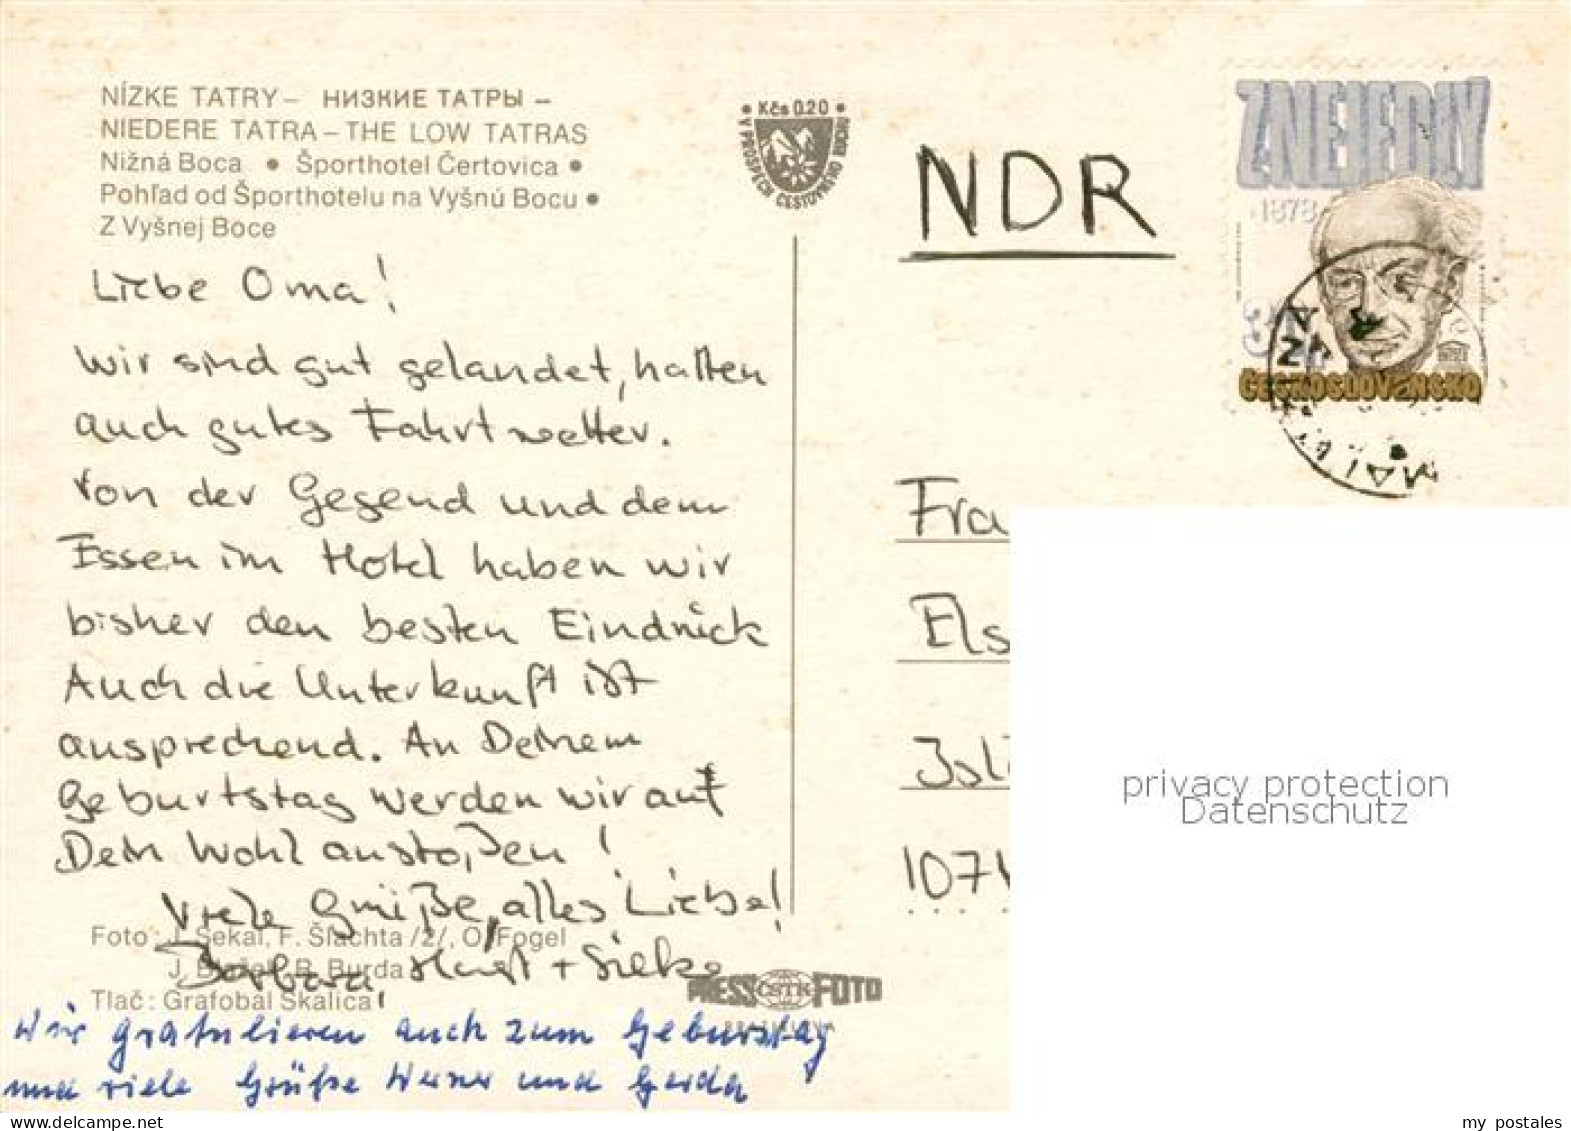 NÍZKE TATRY – НИЗКИЕ ТАТРЫ –
NIEDERE TATRA – THE LOW TATRAS
Nižná Boca ● Športhotel Čertovica ●
Pohľad od Športhotelu na Vyšnú Bocu ●
Z Vyšnej Boce
Liebe Oma!
Wir sind gut gelandet, hatten
auch gutes Fahrtwetter.
Von der Gegend und dem
Essen im Hotel haben wir
bisher den besten Eindruck
Auch die Unterkunft ist
ansprechend. An Deinem
Geburtstag werden wir auf
Dein Wohl anstoßen!
Viele Grüße, alles Liebe!
Barbara, Horst + Silke
Foto: J. Sekal, F. Šlachta /2/, O. Fogel
J. B. Burda
Tlač: Grafobal Skalica
Wir gratulieren auch zum Geburtstag
und viele Grüße Werner und Gerda
● Kčs 0.20 ●
V PROSPECH CESTOVNÉHO RUCHU
PRESS ČSTK FOTO
NDR
Z NEJEDLÝ
1878
ČESKOSLOVENSKO
Fra
Els
107
privacy protection
Datenschutz
my_postales